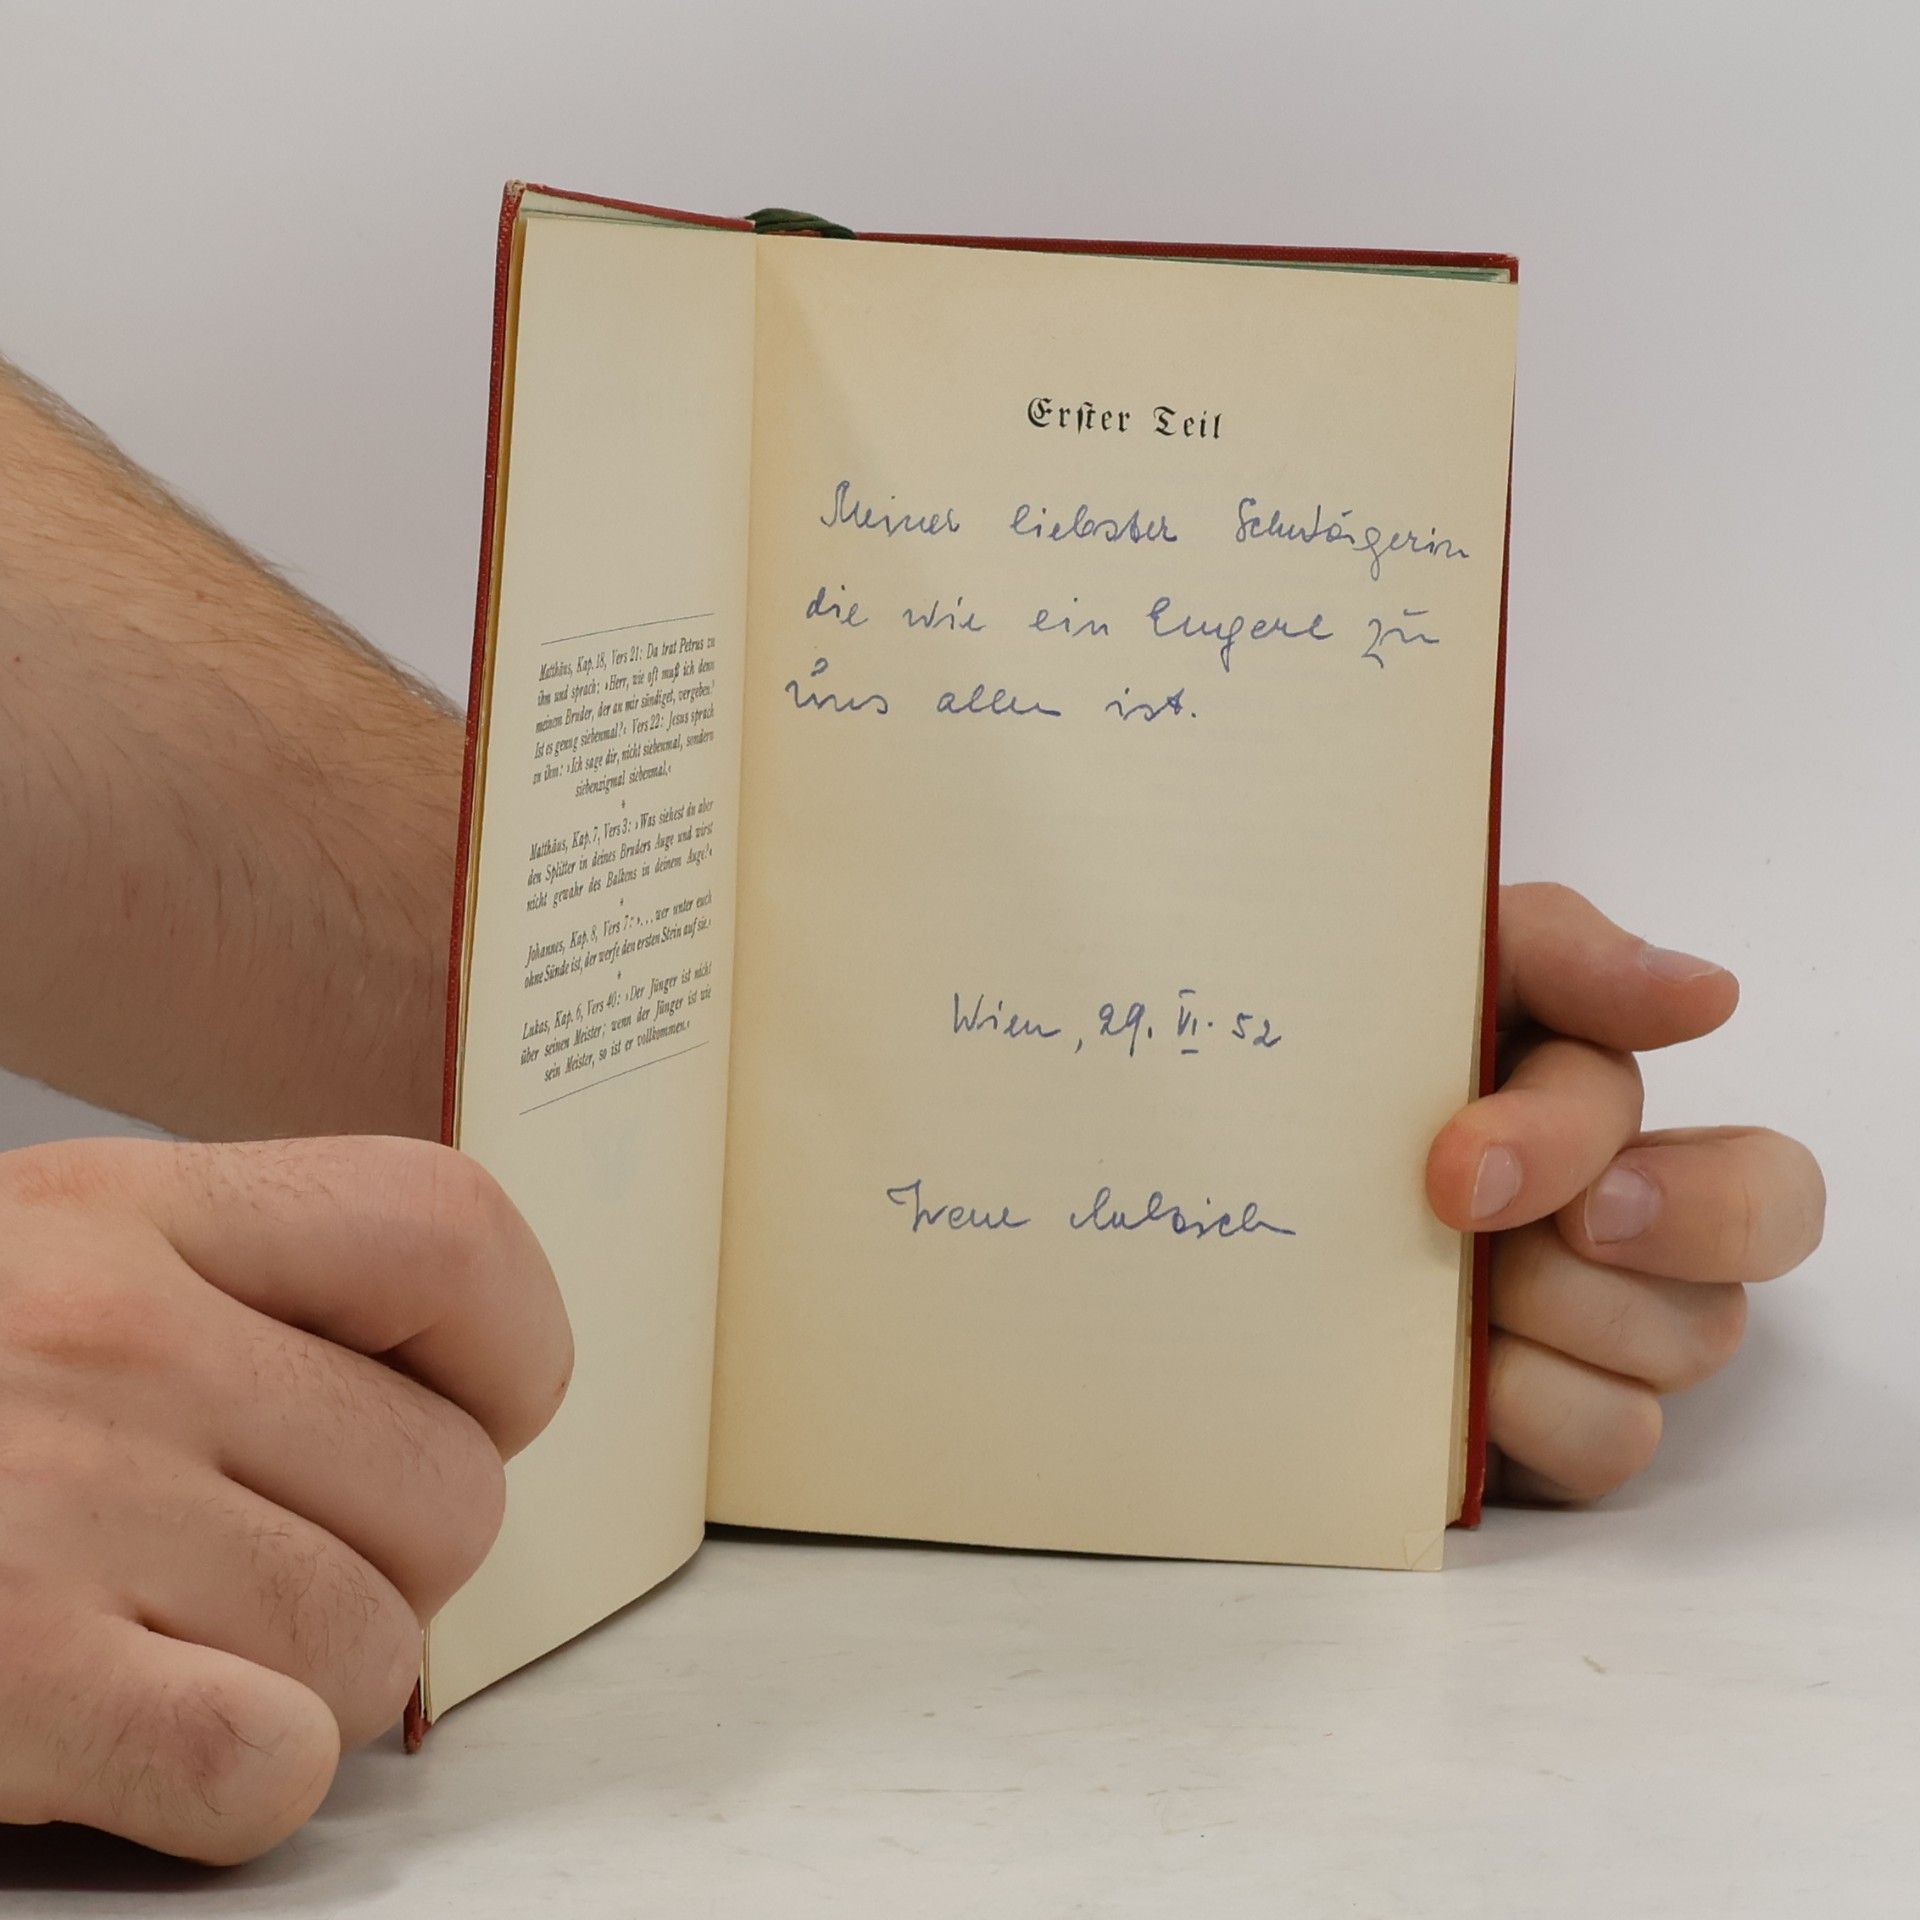 Matthäus, Kap. 18, Vers 21: Da trat Petrus zu
ihm und sprach: ›Herr, wie oft muß ich denn
meinem Bruder, der an mir sündiget, vergeben?
Ist es genug siebenmal?‹ Vers 22: Jesus sprach
zu ihm: ›Ich sage dir, nicht siebenmal, sondern
siebenzigmal siebenmal.‹
*
Matthäus, Kap. 7, Vers 3: ›Was siehest du aber
den Splitter in deines Bruders Auge und wirst
nicht gewahr des Balkens in deinem Auge?‹
*
Johannes, Kap. 8, Vers 7: ›... wer unter euch
ohne Sünde ist, der werfe den ersten Stein auf sie.‹
*
Lukas, Kap. 6, Vers 40: ›Der Jünger ist nicht
über seinen Meister; wenn der Jünger ist wie
sein Meister, so ist er vollkommen.‹
Erster Teil
Meiner liebster Schwägerin
die wie ein Engerl zu
uns allen ist.
Wien, 29. VI. 52
Irene